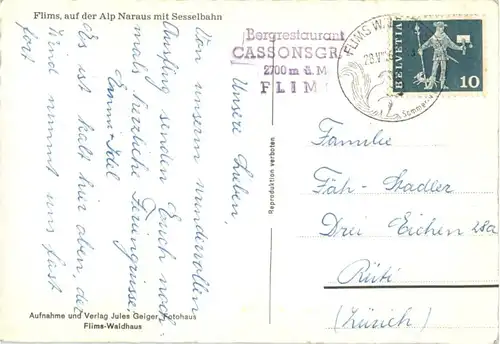 Flims, auf der Alp Naraus mit Sesselbahn
Unsere Lieben,
Von unserm wundervollen
Ausflug senden Euch noch-
mals herzliche Feriengrüsse.
Emmi-Idel
Es ist kalt hier oben, der
Wind nimmt uns fast
fort
Aufnahme und Verlag Jules Geiger, Fotohaus
Flims-Waldhaus
Reproduktion verboten
Bergrestaurant
CASSONSGR
2700 m ü. M
FLIM
FLIMS W
Sommer
HELVETIA
10
Familie
Fäh-Stadler
Drei Eichen 28a
Rüti
(Zürich)